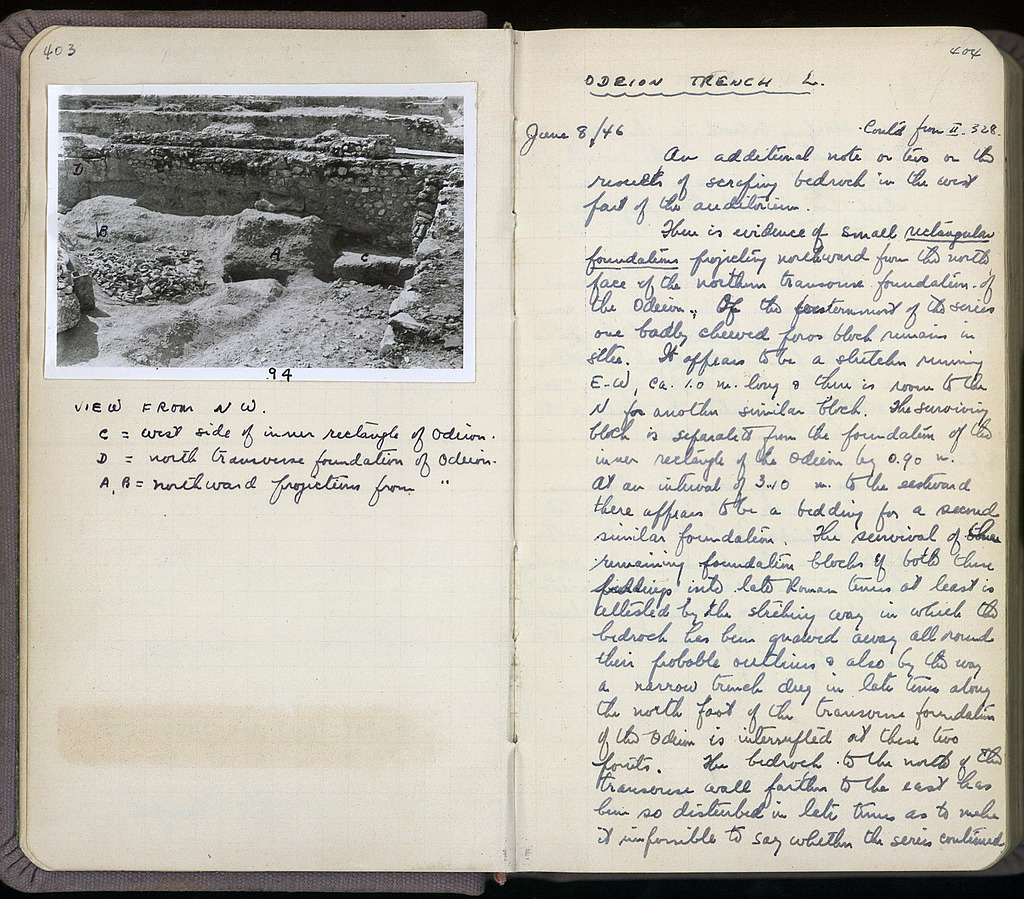 403
D
B
A
C
94
VIEW FROM NW.
C = west side of inner rectangle of Odeion.
D = north transverse foundation of Odeion.
A, B = northward projections from "
404
ODEION TRENCH L.
June 8/46
Cont'd from II. 328.
An additional note or two on the
results of scraping bedrock in the west
part of the auditorium.
There is evidence of small rectangular
foundations projecting northward from the north
face of the northern transverse foundation of
the Odeion. Of the westernmost of the series
one badly chewed poros block remains in
situ. It appears to be a stretcher running
E-W, ca. 1.0 m. long & there is room to the
N for another similar block. The surviving
block is separated from the foundation of the
inner rectangle of the Odeion by 0.90 m.
At an interval of 3.10 m. to the eastward
there appears to be a bedding for a second
similar foundation. The survival of
remaining foundation blocks of both these
beddings into late Roman times at least is
attested by the striking way in which the
bedrock has been gnawed away all round
their probable outlines & also by the way
a narrow trench dug in late times along
the north foot of the transverse foundation
of the Odeion is interrupted at these two
points. The bedrock to the north of the
transverse wall farther to the east has
been so disturbed in late times as to make
it impossible to say whether the series continued